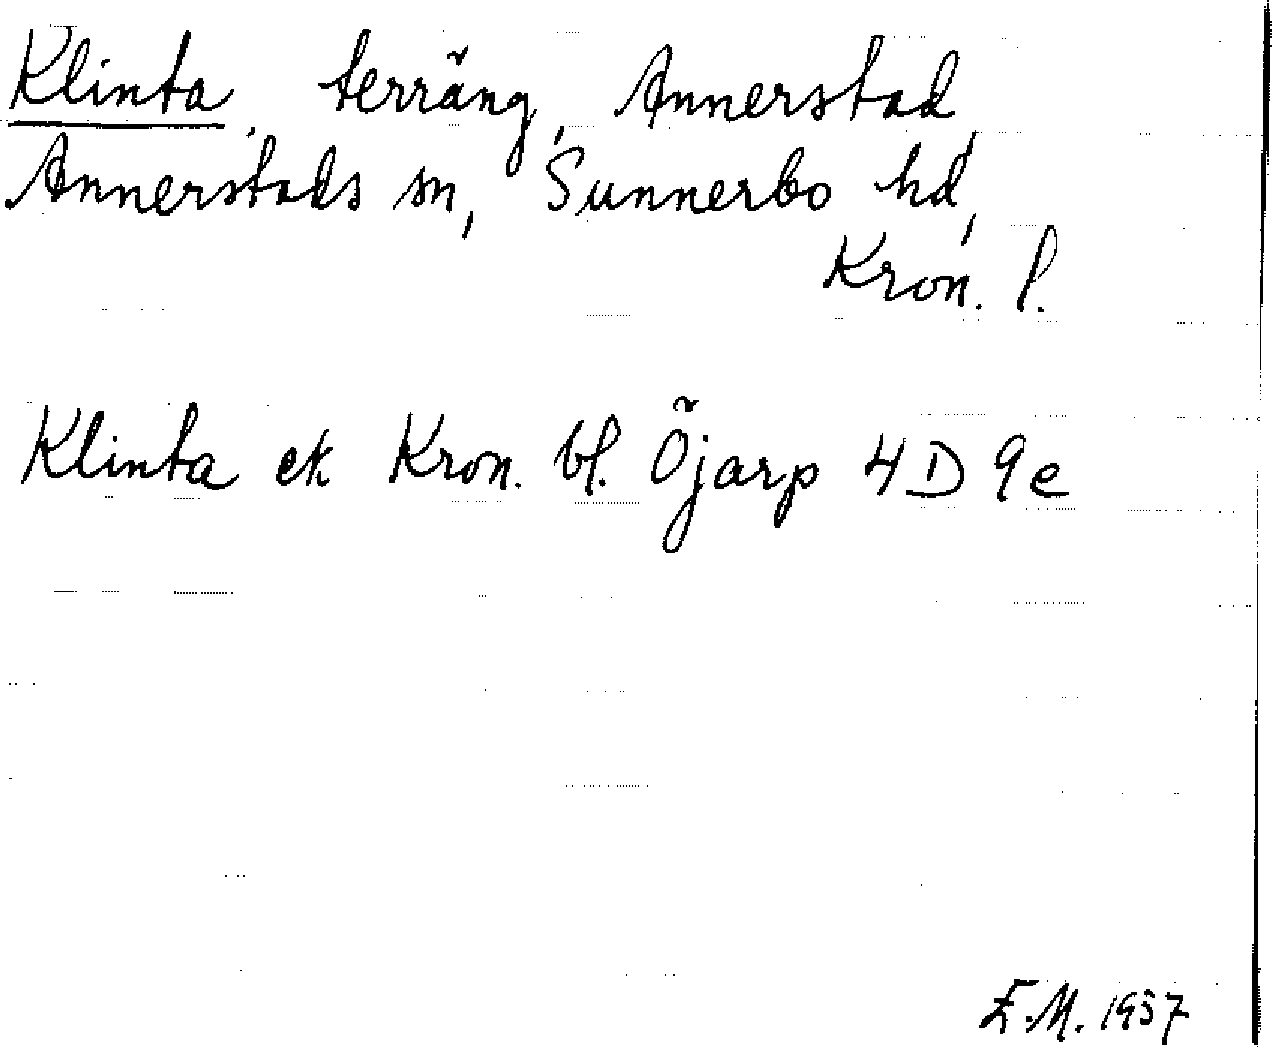 Klinta, terräng, Annerstad,
Annerstads sn, Sunnerbo hd,
Kron. l.
Klinta ek Kron. bl. Öjarp 4D 9e
E.M. 1957